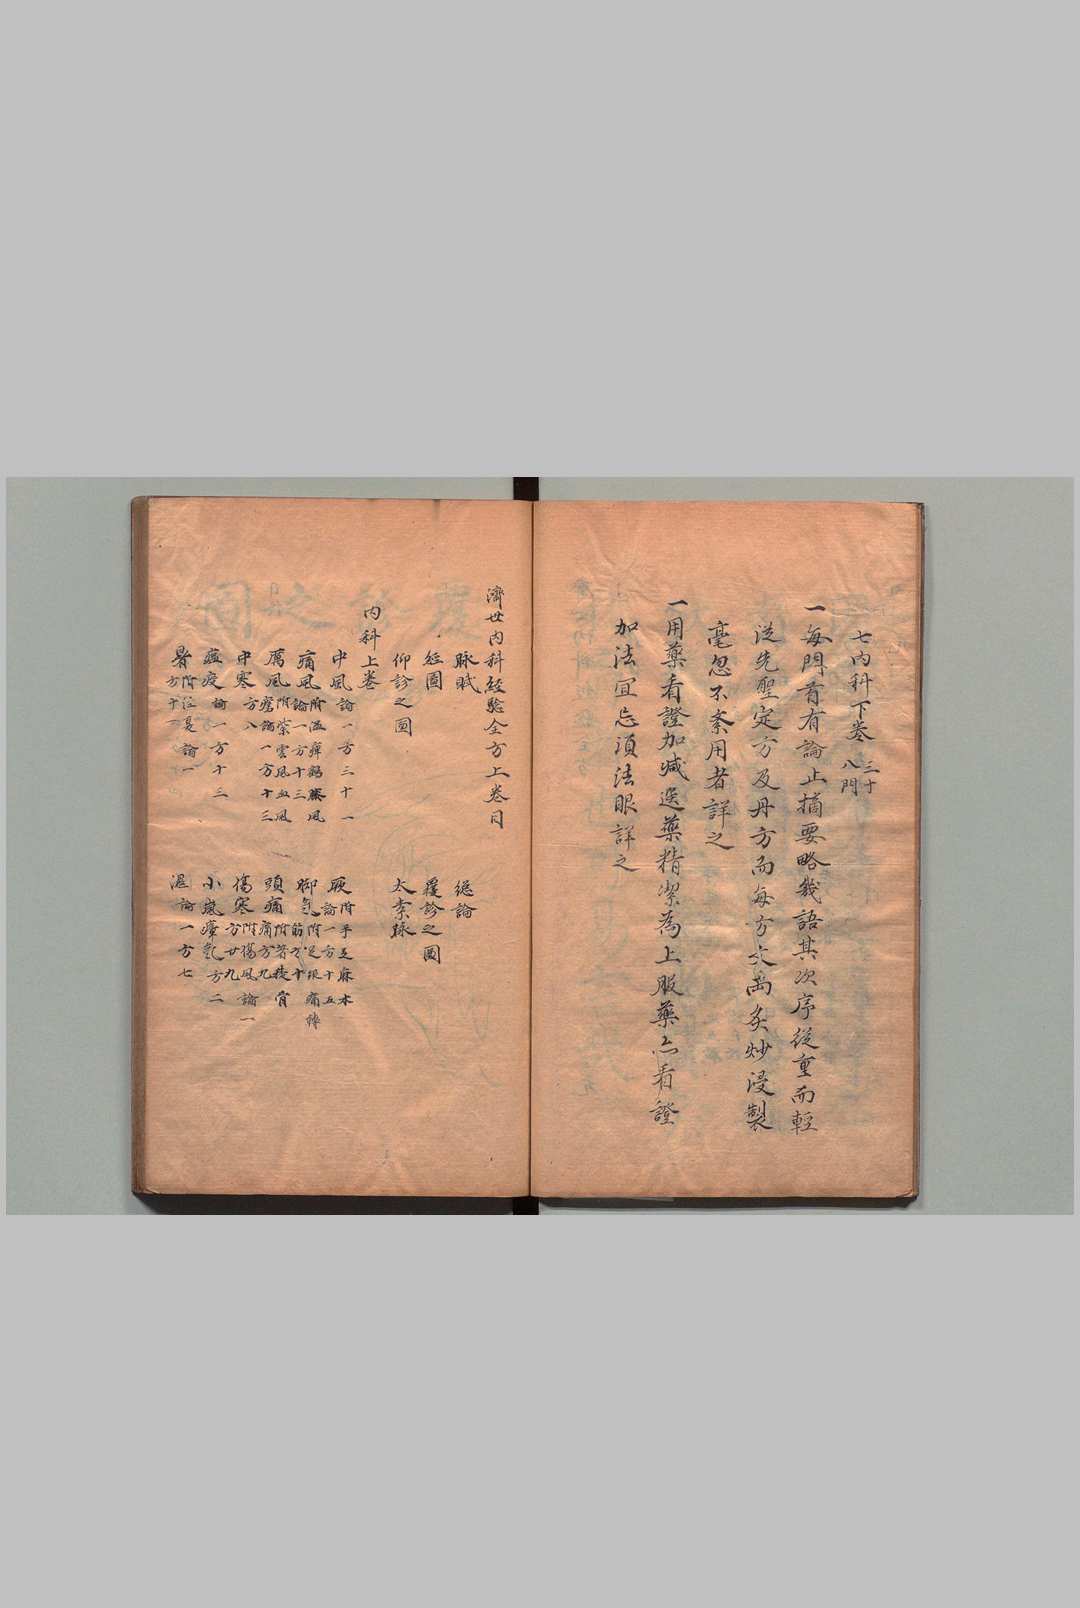 七内科下卷 三十八門
一每門首有論止摘要略幾語其次序從重而輕
從先聖定方及丹方而每方文兩炙炒浸製
毫忽不紊用者詳之
一用藥看證加减選藥精潔為上服藥亦看證
加法宜忌須法眼詳之
濟世内科經驗全方上卷目
脉賦 總論
經圖 覆診之圖
仰診之圖 太素脉
内科上卷
中風論一方三十一 厥附手足麻木論一方十五
痛風附温痺鶴膝風論一方十三 脚氣附足跟痛轉筋方十
厲風附紫雲風血風瘡論一方十三 頭痛附眉稜骨痛方九
中寒方八 傷寒附傷風論一方廿九
瘟疫論一方十三 小嵐瘴氣方二
暑附注夏論一方十一 濕論一方七